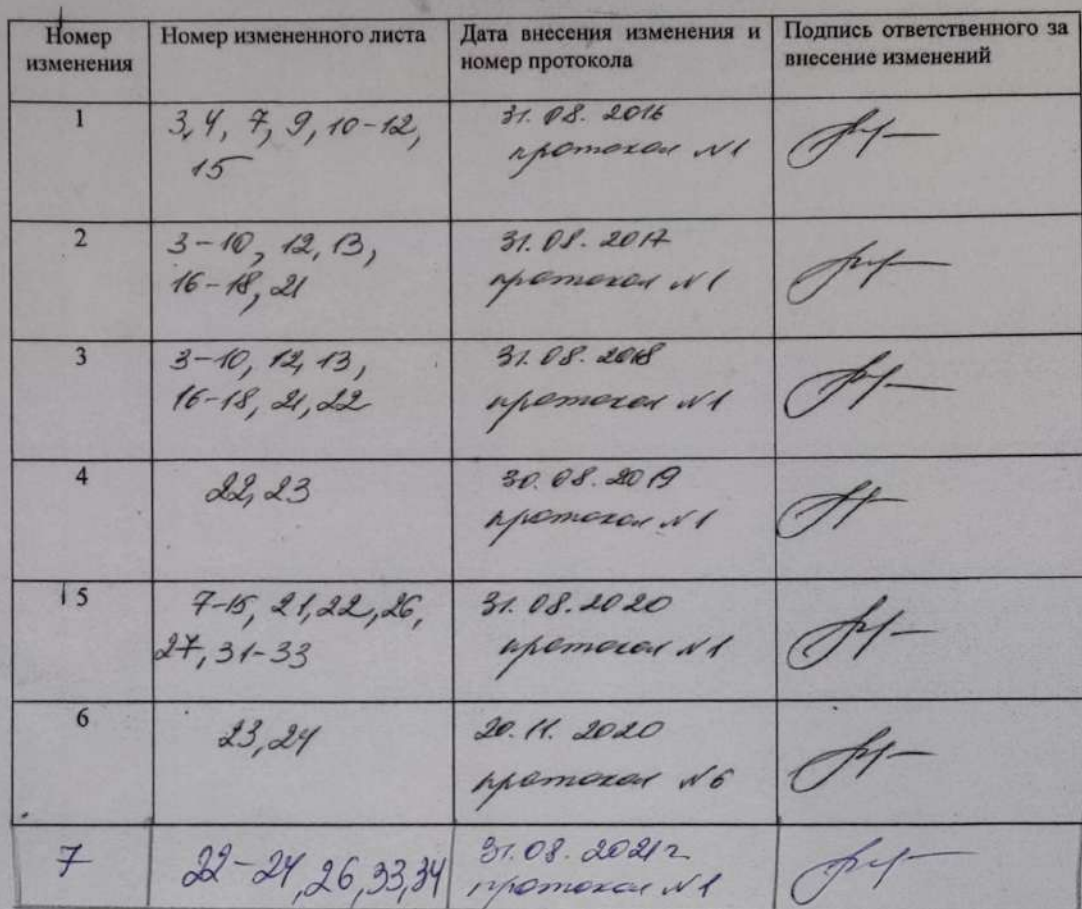 Номер изменения
Номер измененного листа
Дата внесения изменения и номер протокола
Подпись ответственного за внесение изменений
1
3, 4, 7, 9, 10-12,
15
31.08.2016
протокол №1
2
3-10, 12, 13,
16-18, 21
31.08.2017
протокол №1
3
3-10, 12, 13,
16-18, 21, 22
31.08.2018
протокол №1
4
22, 23
30.08.2019
протокол №1
5
7-15, 21, 22, 26,
27, 31-33
31.08.2020
протокол №1
6
23, 24
20.11.2020
протокол №6
7
22-24, 26, 33, 34
31.08.2021 г
протокол №1